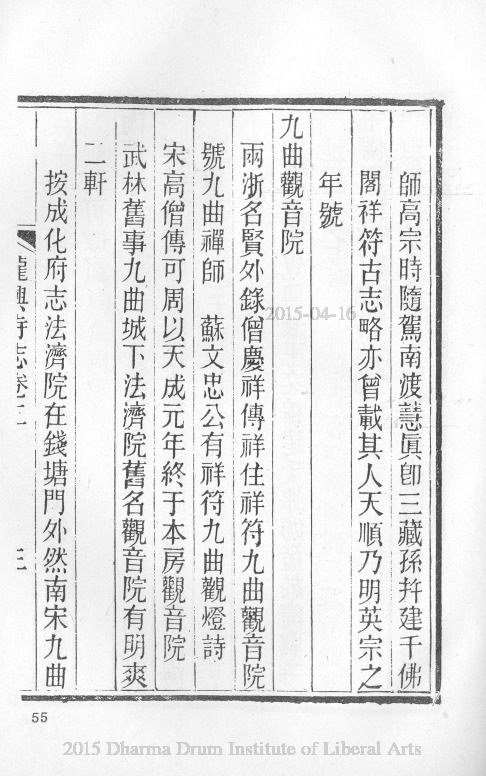 師高宗時隨駕南渡慧眞卽三藏孫拜建千佛
閣祥符古志略亦曾載其人天順乃明英宗之
年號
九曲觀音院
兩浙名賢外錄僧慶祥傳祥住祥符九曲觀音院
號九曲禪師 蘇文忠公有祥符九曲觀燈詩
宋高僧傳可周以天成元年終于本房觀音院
武林舊事九曲城下法濟院舊名觀音院有明爽
二軒
按成化府志法濟院在錢塘門外然南宋九曲
龍興寺志卷二
三
55
2015-04-16
2015 Dharma Drum Institute of Liberal Arts